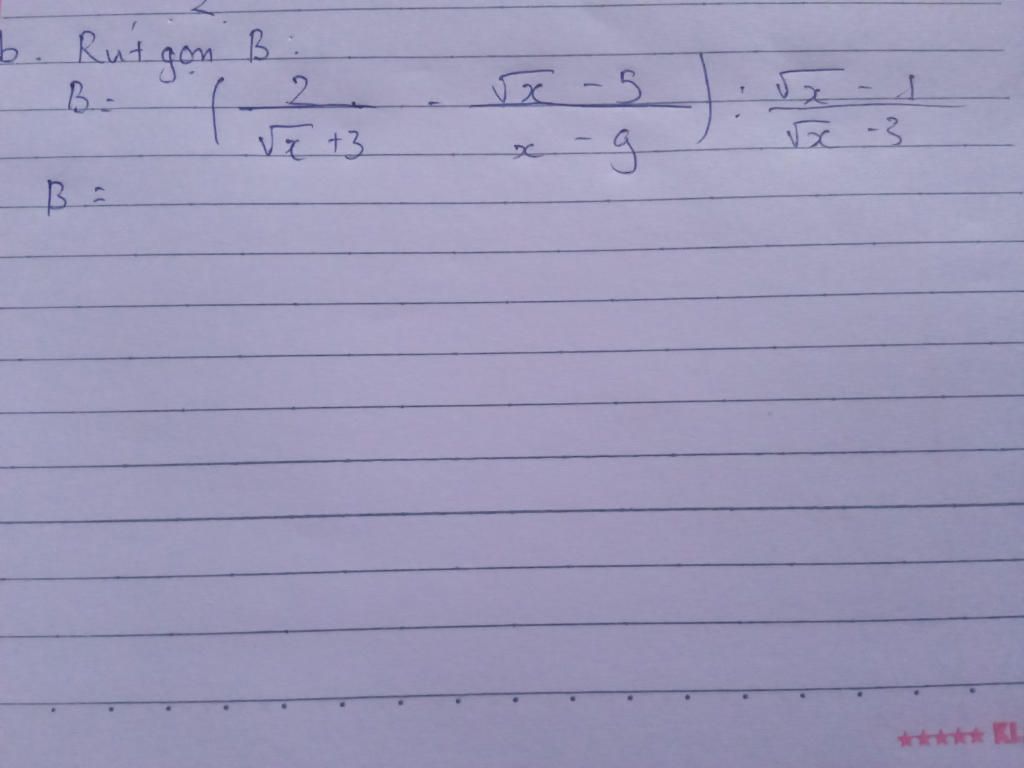 b. Rút gọn B :
B = ( 2 / √x + 3 - √x - 5 / x - 9 ) : √x - 1 / √x - 3
B =
★★★★★ KL